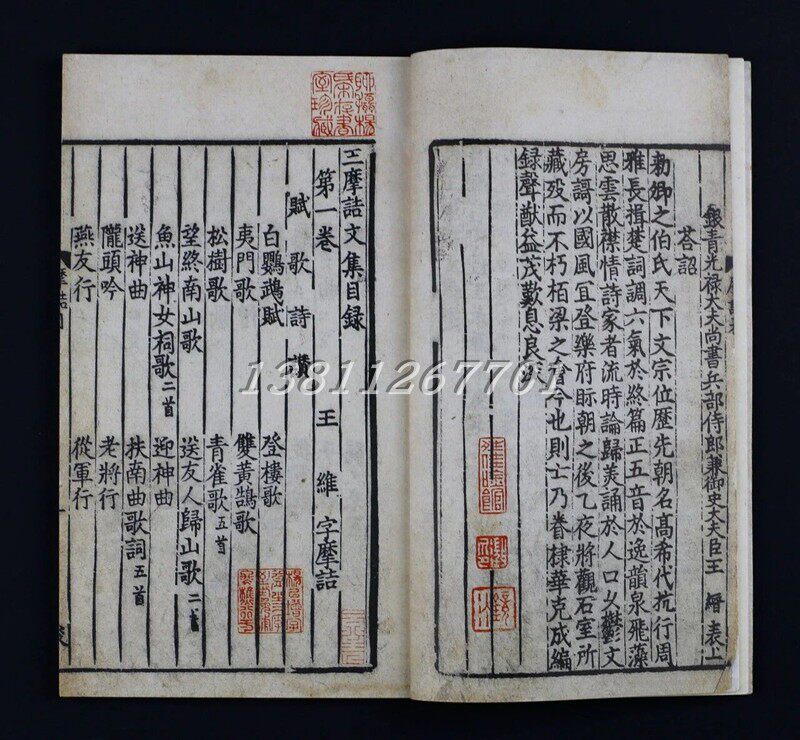 銀青光禄大夫尚書兵部侍郎兼御史大夫臣王 縉表上
荅詔
勑卿之伯氏天下文宗位歷先朝名髙希代抗行周
雅長揖楚詞調六氣於終篇正五音於逸韻泉飛藻
思雲散襟情詩家者流時論歸美誦於人口久鬱文
房謌以國風宜登樂府眎朝之後乙夜將觀石室所
藏歿而不朽栢梁之會今也則士乃眷棣華克成編
録聲猷益茂歎息良
王摩詰文集目録
第一卷 王 維 字摩詰
賦 歌 詩 讚
白鸚鵡賦 登樓歌
夷門歌 雙黃鵠歌
松樹歌 青雀歌五首
望終南山歌 送友人歸山歌二首
魚山神女祠歌二首 迎神曲
送神曲 扶南曲歌詞五首
隴頭吟 老將行
燕友行 從軍行
13811267701